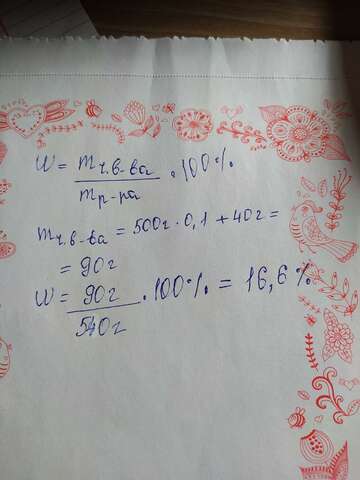 W = m ч.в-ва / m р-ра · 100%
m ч.в-ва = 500г · 0,1 + 40г =
= 90г
W = 90г / 540г · 100% = 16,6%